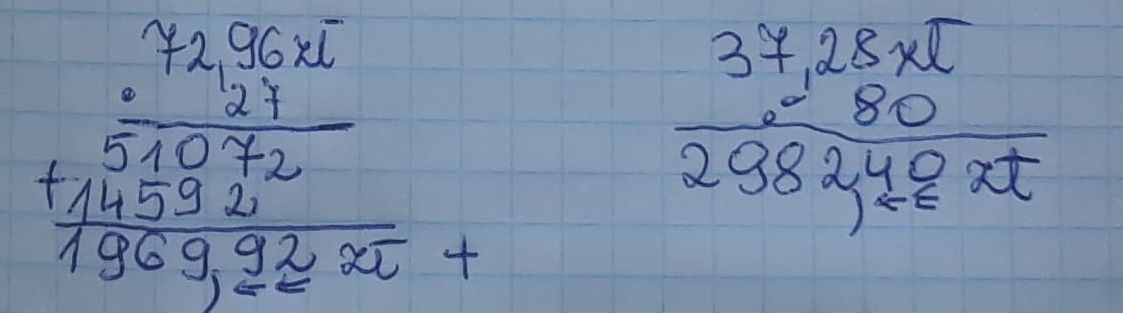 72,96 zł
· 27
51072
+14592
1969,92 zł +
37,28 zł
· 80
2982,40 zł